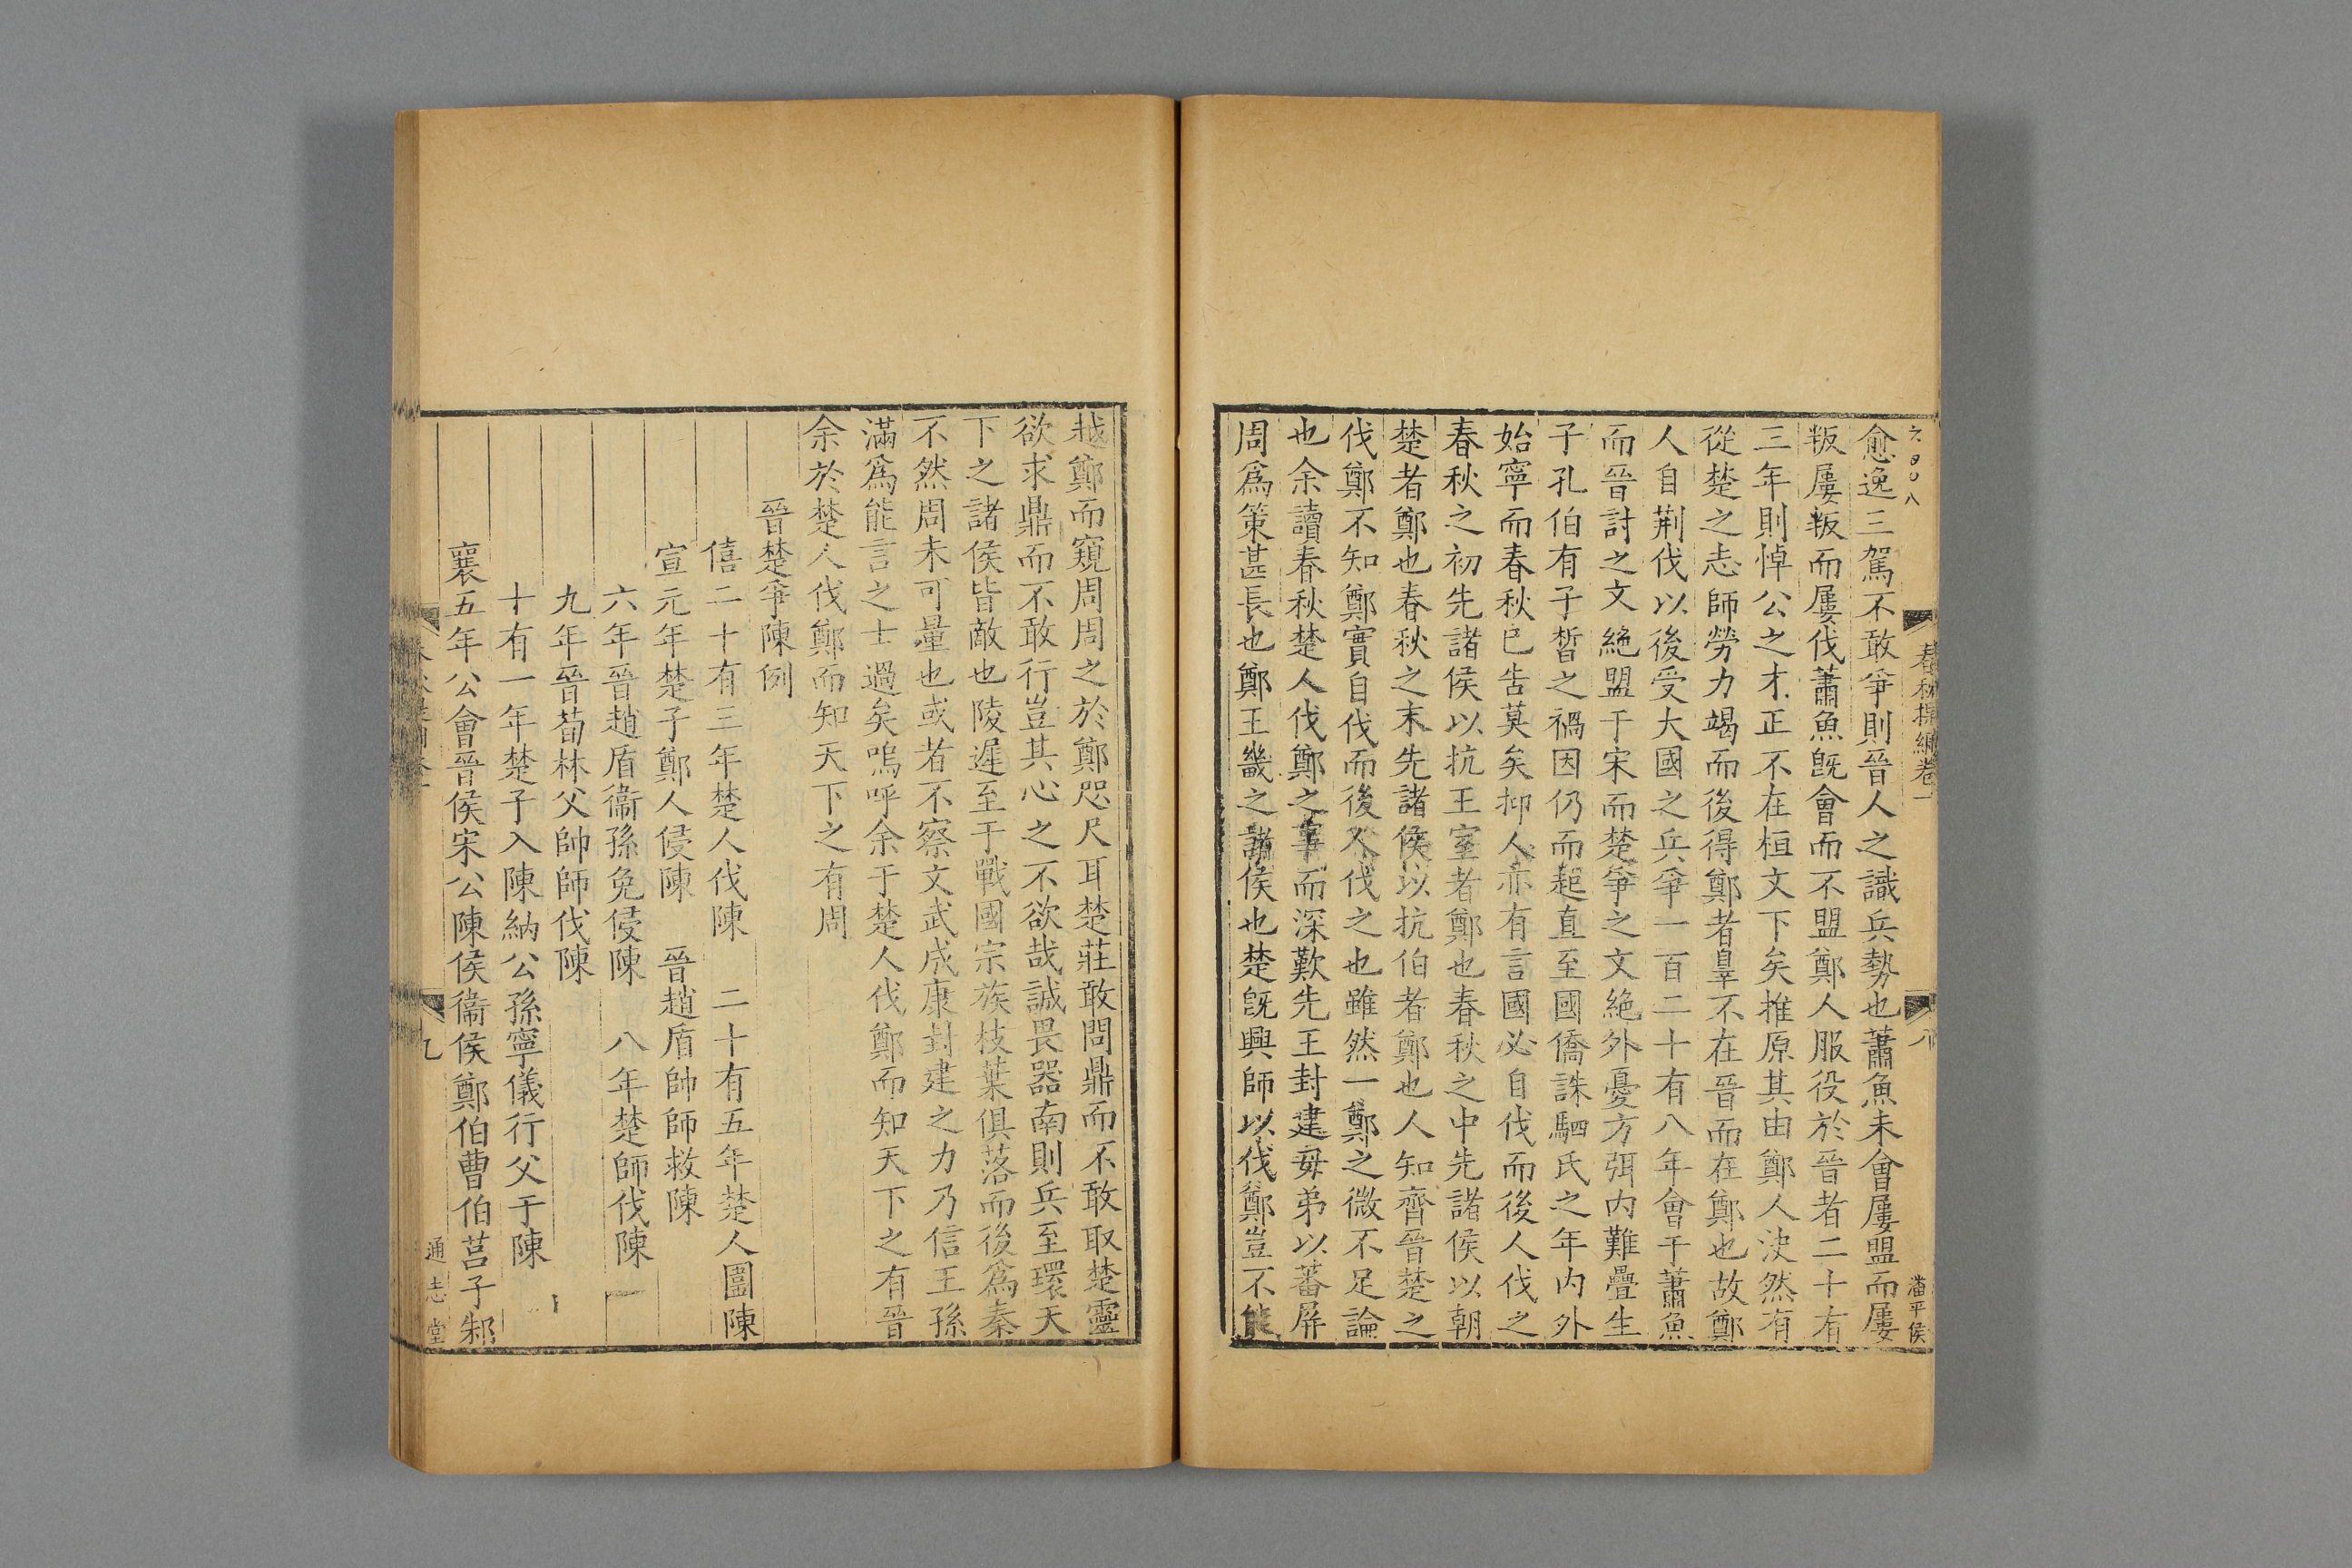 愈逸三駕不敢爭則晉人之識兵勢也蕭魚未會屢盟而屢
叛屢叛而屢伐蕭魚旣會而不盟鄭人服役於晉者二十有
三年則悼公之才正不在桓文下矣推原其由鄭人決然有
從楚之志師勞力竭而後得鄭者辠不在晉而在鄭也故鄭
人自荆伐以後受大國之兵爭一百二十有八年會于蕭魚
而晉討之文絶盟于宋而楚爭之文絶外憂方弭内難疊生
子孔伯有子晳之禍因仍而起直至國僑誅駟氏之年内外
始寧而春秋已告莫矣抑人亦有言國必自伐而後人伐之
春秋之初先諸侯以抗王室者鄭也春秋之中先諸侯以朝
楚者鄭也春秋之末先諸侯以抗伯者鄭也人知齊晉楚之
伐鄭不知鄭實自伐而後人伐之也雖然一鄭之微不足論
也余讀春秋楚人伐鄭之事而深歎先王封建毋弟以蕃屏
周爲策甚長也鄭王畿之諸侯也楚旣興師以伐鄭豈不能
春秋提綱卷一
八
潘平侯
越鄭而窺周周之於鄭咫尺耳楚莊敢問鼎而不敢取楚靈
欲求鼎而不敢行豈其心之不欲哉誠畏器南則兵至環天
下之諸侯皆敵也陵遲至于戰國宗族枝葉俱落而後爲秦
不然周未可量也或者不察文武成康封建之力乃信王孫
滿爲能言之士過矣嗚呼余于楚人伐鄭而知天下之有晉
余於楚人伐鄭而知天下之有周
晉楚爭陳例
僖二十有三年楚人伐陳 二十有五年楚人圍陳
宣元年楚子鄭人侵陳 晉趙盾帥師救陳
六年晉趙盾衞孫免侵陳 八年楚師伐陳
九年晉荀林父帥師伐陳
十有一年楚子入陳納公孫寧儀行父于陳
襄五年公會晉侯宋公陳侯衞侯鄭伯曹伯莒子邾
九
通志堂